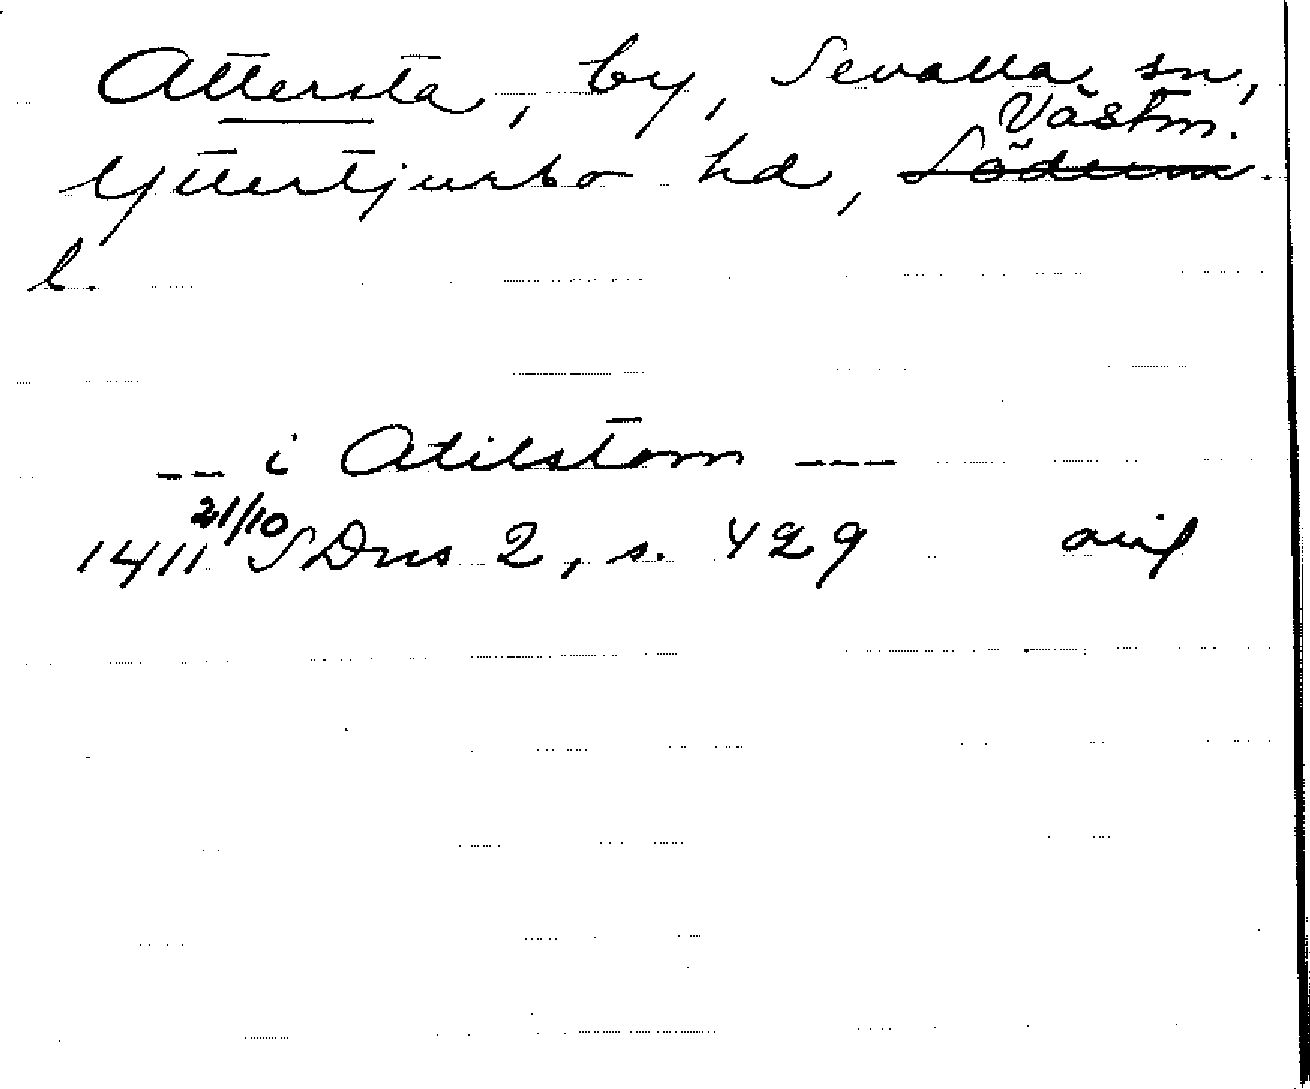 Attersta, by, Sevalla sn,
Västm.
Yttertjurbo hd, Söderm.
l.
-- i Atilstom ---
1411 21/10 SDns 2, s. 429 avif